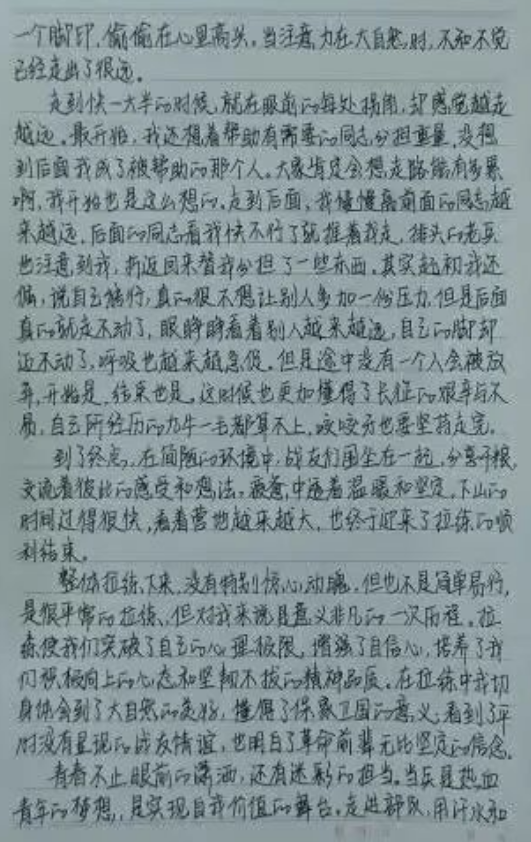 一个脚印,偷偷在心里高头。当注意力在大自然时,不知不觉
已经走出了很远。
走到快一大半的时候,就在眼前的每处拐角,却感觉越走
越远。最开始,我还想着帮助有需要的同志分担重量,没想
到后面我成了被帮助的那个人。大家肯定会想走路能有多累
啊,我开始也是这么想的。走到后面,我慢慢离前面的同志越
来越远,后面的同志看我快不行了就推着我走,排头的老兵
也注意到我,折返回来替我分担了一些东西。其实起初我还
倔,说自己能行,真的很不想让别人多加一份压力,但是后面
真的就走不动了,眼睁睁看着别人越来越远,自己的脚却
迈不动了,呼吸也越来越急促。但是途中没有一个人会被放
弃,开始是,结束也是。这时候也更加懂得了长征的艰辛与不
易,自己所经历的九牛一毛都算不上,咬咬牙也要坚持走完。
到了终点,在简陋的环境中,战友们围坐在一起,分享干粮,
交流着彼此的感受和想法。疲惫中透着温暖和坚定。下山的
时间过得很快,看着营地越来越大,也终于迎来了拉练的顺
利结束。
整体拉练下来,没有特别惊心动魄,但也不是简单易行,
是很平常的拉练,但对我来说是意义非凡的一次历程。拉
练使我们突破了自己的心理极限,增强了自信心,培养了我
们积极向上的心态和坚韧不拔的精神品质。在拉练中我切
身体会到了大自然的美好,懂得了保家卫国的意义;看到了平
时没有显现的战友情谊,也明白了革命前辈无比坚定的信念。
青春不止眼前的潇洒,还有迷彩的担当。当兵是热血
青年的梦想,是实现自我价值的舞台。走进部队,用汗水和